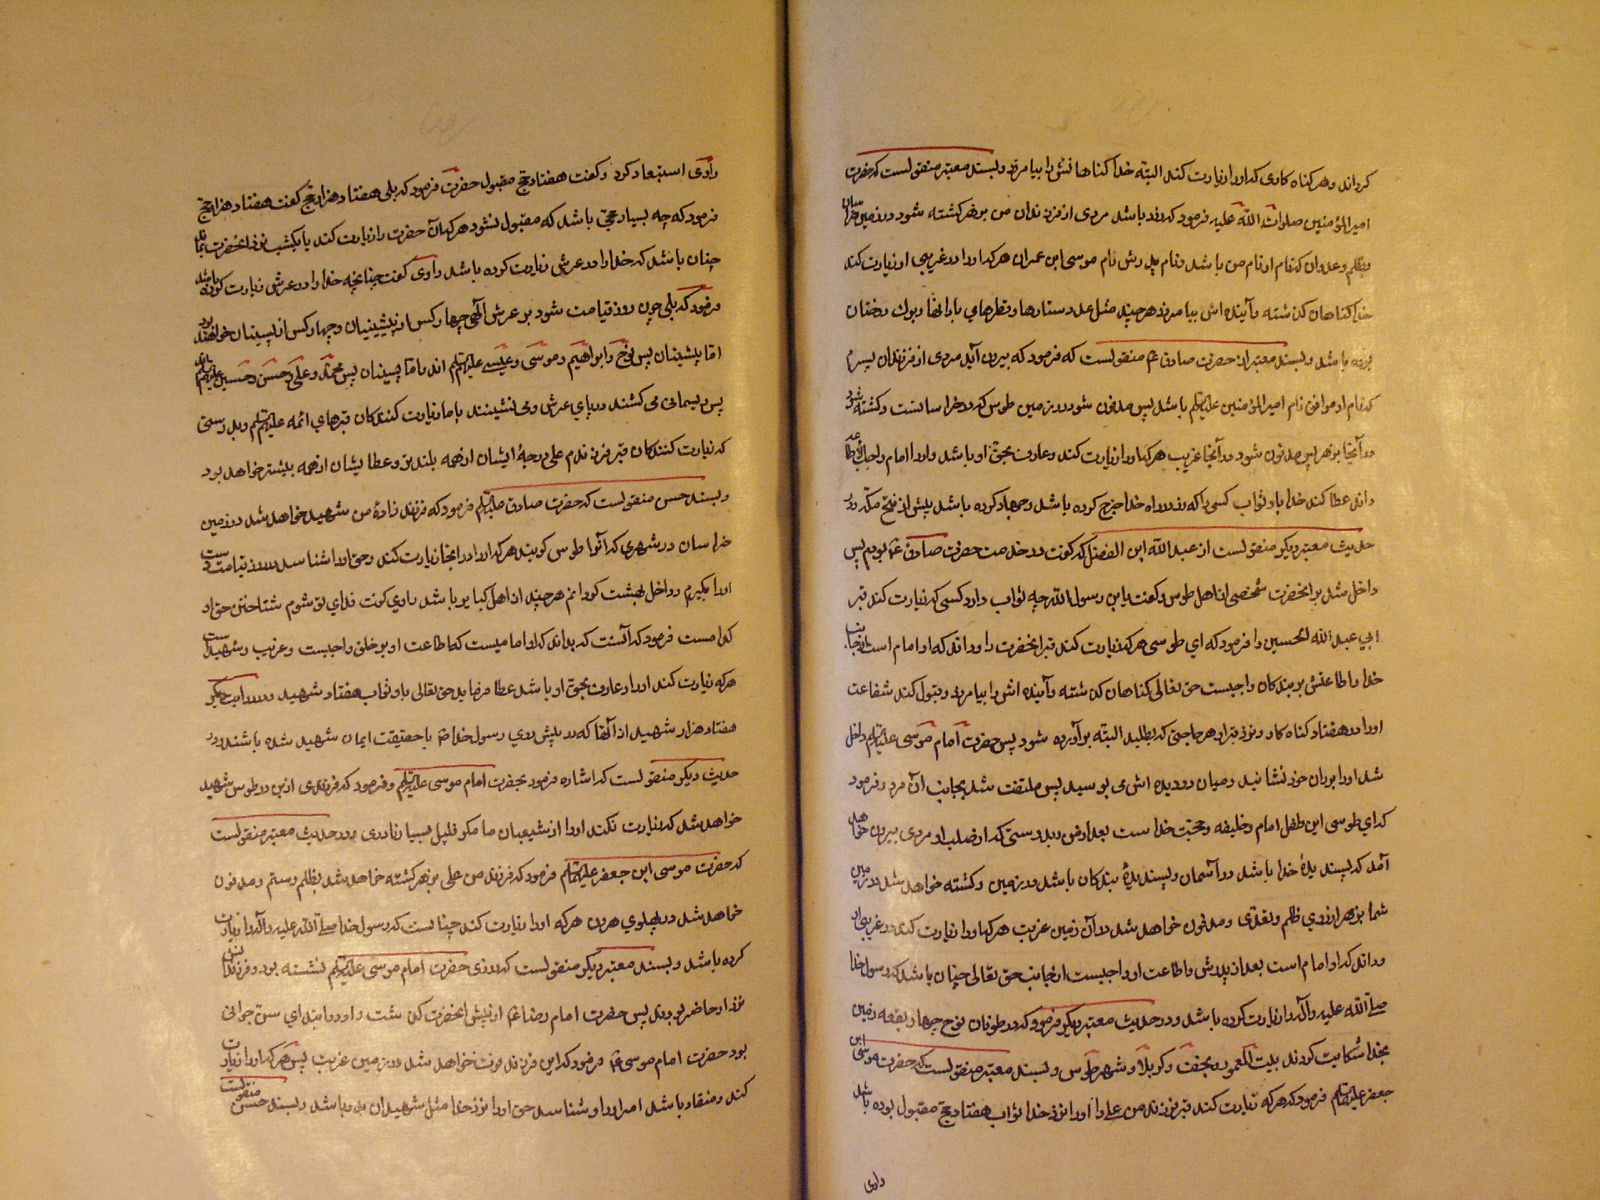 کرداند و هر کناه کاری که او را زیارت کند البته خدا کناهانش را بیامرزد و بسند معتبر منقولست که حضرت
امیر المؤمنین صلوات الله علیه فرمود که زود باشد مردی از فرزندان من بزهر کشته شود در زمین خراسان
بظلم و عدوان که نام او نام من باشد و نام پدرش نام موسی ابن عمران هر که او را در غریبی او زیارت کند
خدا کناهان کذشته و آینده اش بیامرزد هر چند مثل عدد ستارها و قطرهای بارانها و برك درختان
بوده باشد و بسند معتبر از حضرت صادق ع منقولست که فرمود که بیرون آید مردی از فرزندان پسرم
که نام او موافق نام امیر المؤمنین علیه السلام باشد پس مدفون شود در زمین طوس که در خراسانست و کشته شود
در آنجا بزهر پس مدفون شود در آنجا غریب هر که او را زیارت کند و عارف بحق او باشد و او را امام واجب الاطاعه
داند عطا کند خدا باو ثواب کسی را که زر در راه خدا خرج کرده باشد و جهاد کرده باشد پیش از فتح مکه و در
حدیث معتبر دیکر منقولست از عبد الله ابن الفضل که کفت در خدمت حضرت صادق ع بودم پس
داخل شد بر انحضرت شخصی از اهل طوس و کفت یا بن رسول الله چه ثواب دارد کسی که زیارت کند قبر
ابی عبد الله الحسین را فرمود که ای طوسی هر که زیارت کند قبر انحضرت را و داند که او امام است از جانب
خدا و اطاعتش بر بندکان واجبست حق تعالی کناهان کذشته و آینده اش را بیامرزد و قبول کند شفاعت
او را در هفتاد کناه کار و نزد قبر او هر حاجتی که بطلبد البته بر آورده شود پس حضرت امام موسی علیه السلام داخل
شد او را بر ران خود نشانید و میان دو دیده اش می بوسید پس ملتفت شد بجانب آن مرد و فرمود
که ای طوسی این طفل امام و خلیفه و حجت خدا ست بعد از من و بدرستی که از صلب او مردی بیرون خواهد
آمد که پسندیدهٔ خدا باشد در آسمان و پسندیدهٔ بندکان باشد در زمین و کشته خواهد شد در زمین
شما بزهر از روی ظلم و تعدی و مدفون خواهد شد در آن زمین غریب هر که او را زیارت کند در غریبی او
و داند که او امام است بعد از پدرش و اطاعت او واجبست از جانب حق تعالی چنان باشد که رسول خدا
صلی الله علیه و آله را زیارت کرده باشد و در حدیث معتبر دیکر فرمود که در طوفان نوح چهار بقعه زمین
بخدا شکایت کردند بیت المعمور و نجف و کربلا و شهر طوس و بسند معتبر منقولست که حضرت موسی ابن
جعفر علیه السلام فرمود که هر که زیارت کند قبر فرزند من علی را او را نزد خدا ثواب هفتاد حج مقبول بوده باشد
راوی
راوی استبعاد کرد و کفت هفتاد حج مقبول حضرت فرمود که بلی هفتاد هزار حج کفت هفتاد هزار حج
فرمود که چه بسیار حجی باشد که مقبول نشود هر که آن حضرت را زیارت کند یا یکشب نزد انحضرت بماند
چنان باشد که خدا را در عرش زیارت کرده باشد راوی کفت چنانچه خدا را در عرش زیارت کرده باشد
فرمود که بلی چون روز قیامت شود بر عرش الهی چهار کس از پیشینیان و چهار کس از پسینان خواهند بود
اما پیشینان پس نوح و ابراهیم و موسی و عیسی علیهم السلام اند و اما پسینان پس محمد و علی و حسن و حسین علیهم السلام اند
پس ریسمانی می کشند در پای عرش و می نشینند با ما زیارت کنندکان قبرهای ائمه علیهم السلام و بدرستی
که زیارت کنندکان قبر فرزندم علی درجهٔ ایشان از همه بلندتر و عطا یشان از همه بیشتر خواهد بود
و بسند حسن منقولست که حضرت صادق علیه السلام فرمود که فرزند زادهٔ من شهید خواهد شد در زمین
خراسان در شهری که آنرا طوس کویند هر که او را در انجا زیارت کند و حق او را شناسد در روز قیامت دست
او را بکیرم و داخل بهشت کردانم هر چند از اهل کبایر باشد راوی کفت فدای تو شوم شناختن حق او
کدامست فرمود که آنست که بداند که او امامیست که اطاعت او بر خلق واجبست و غریب و شهید است
هر که زیارت کند او را و عارف بحق او باشد عطا فرماید حق تعالی باو ثواب هفتاد شهید و در روایت دیکر
هفتاد هزار شهید از آنها که در پیش روی رسول خدا ص با حقیقت ایمان شهید شده باشند و در
حدیث دیکر منقولست که اشاره فرمود بحضرت امام موسی علیه السلام و فرمود که فرزندی از این در طوس شهید
خواهد شد که زیارت نکند او را از شیعیان ما مکر قلیل بسیار نادری و در حدیث معتبر منقولست
که حضرت موسی ابن جعفر علیه السلام فرمود که فرزند من علی بزهر کشته خواهد شد بظلم و ستم و مدفون
خواهد شد در پهلوی هرون هر که او را زیارت کند چنانست که رسول خدا صلی الله علیه و آله را زیارت
کرده باشد و بسند معتبر دیکر منقولست که روزی حضرت امام موسی علیه السلام نشسته بود و فرزندان
نزد او حاضر بودند پس حضرت امام رضا ع از پیش انحضرت کذشت و او در ابتدای سن جوانی
بود حضرت امام موسی ع فرمود که این فرزند فوت خواهد شد در زمین غربت پس هر که او را زیارت
کند و منقاد باشد امر او را و شناسد حق او را نزد خدا مثل شهیدان بدر باشد و بسند حسن منقولست